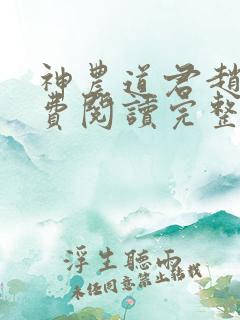 神農道君趙
費閱讀完整
浮生聽雨
未經同意禁止轉載